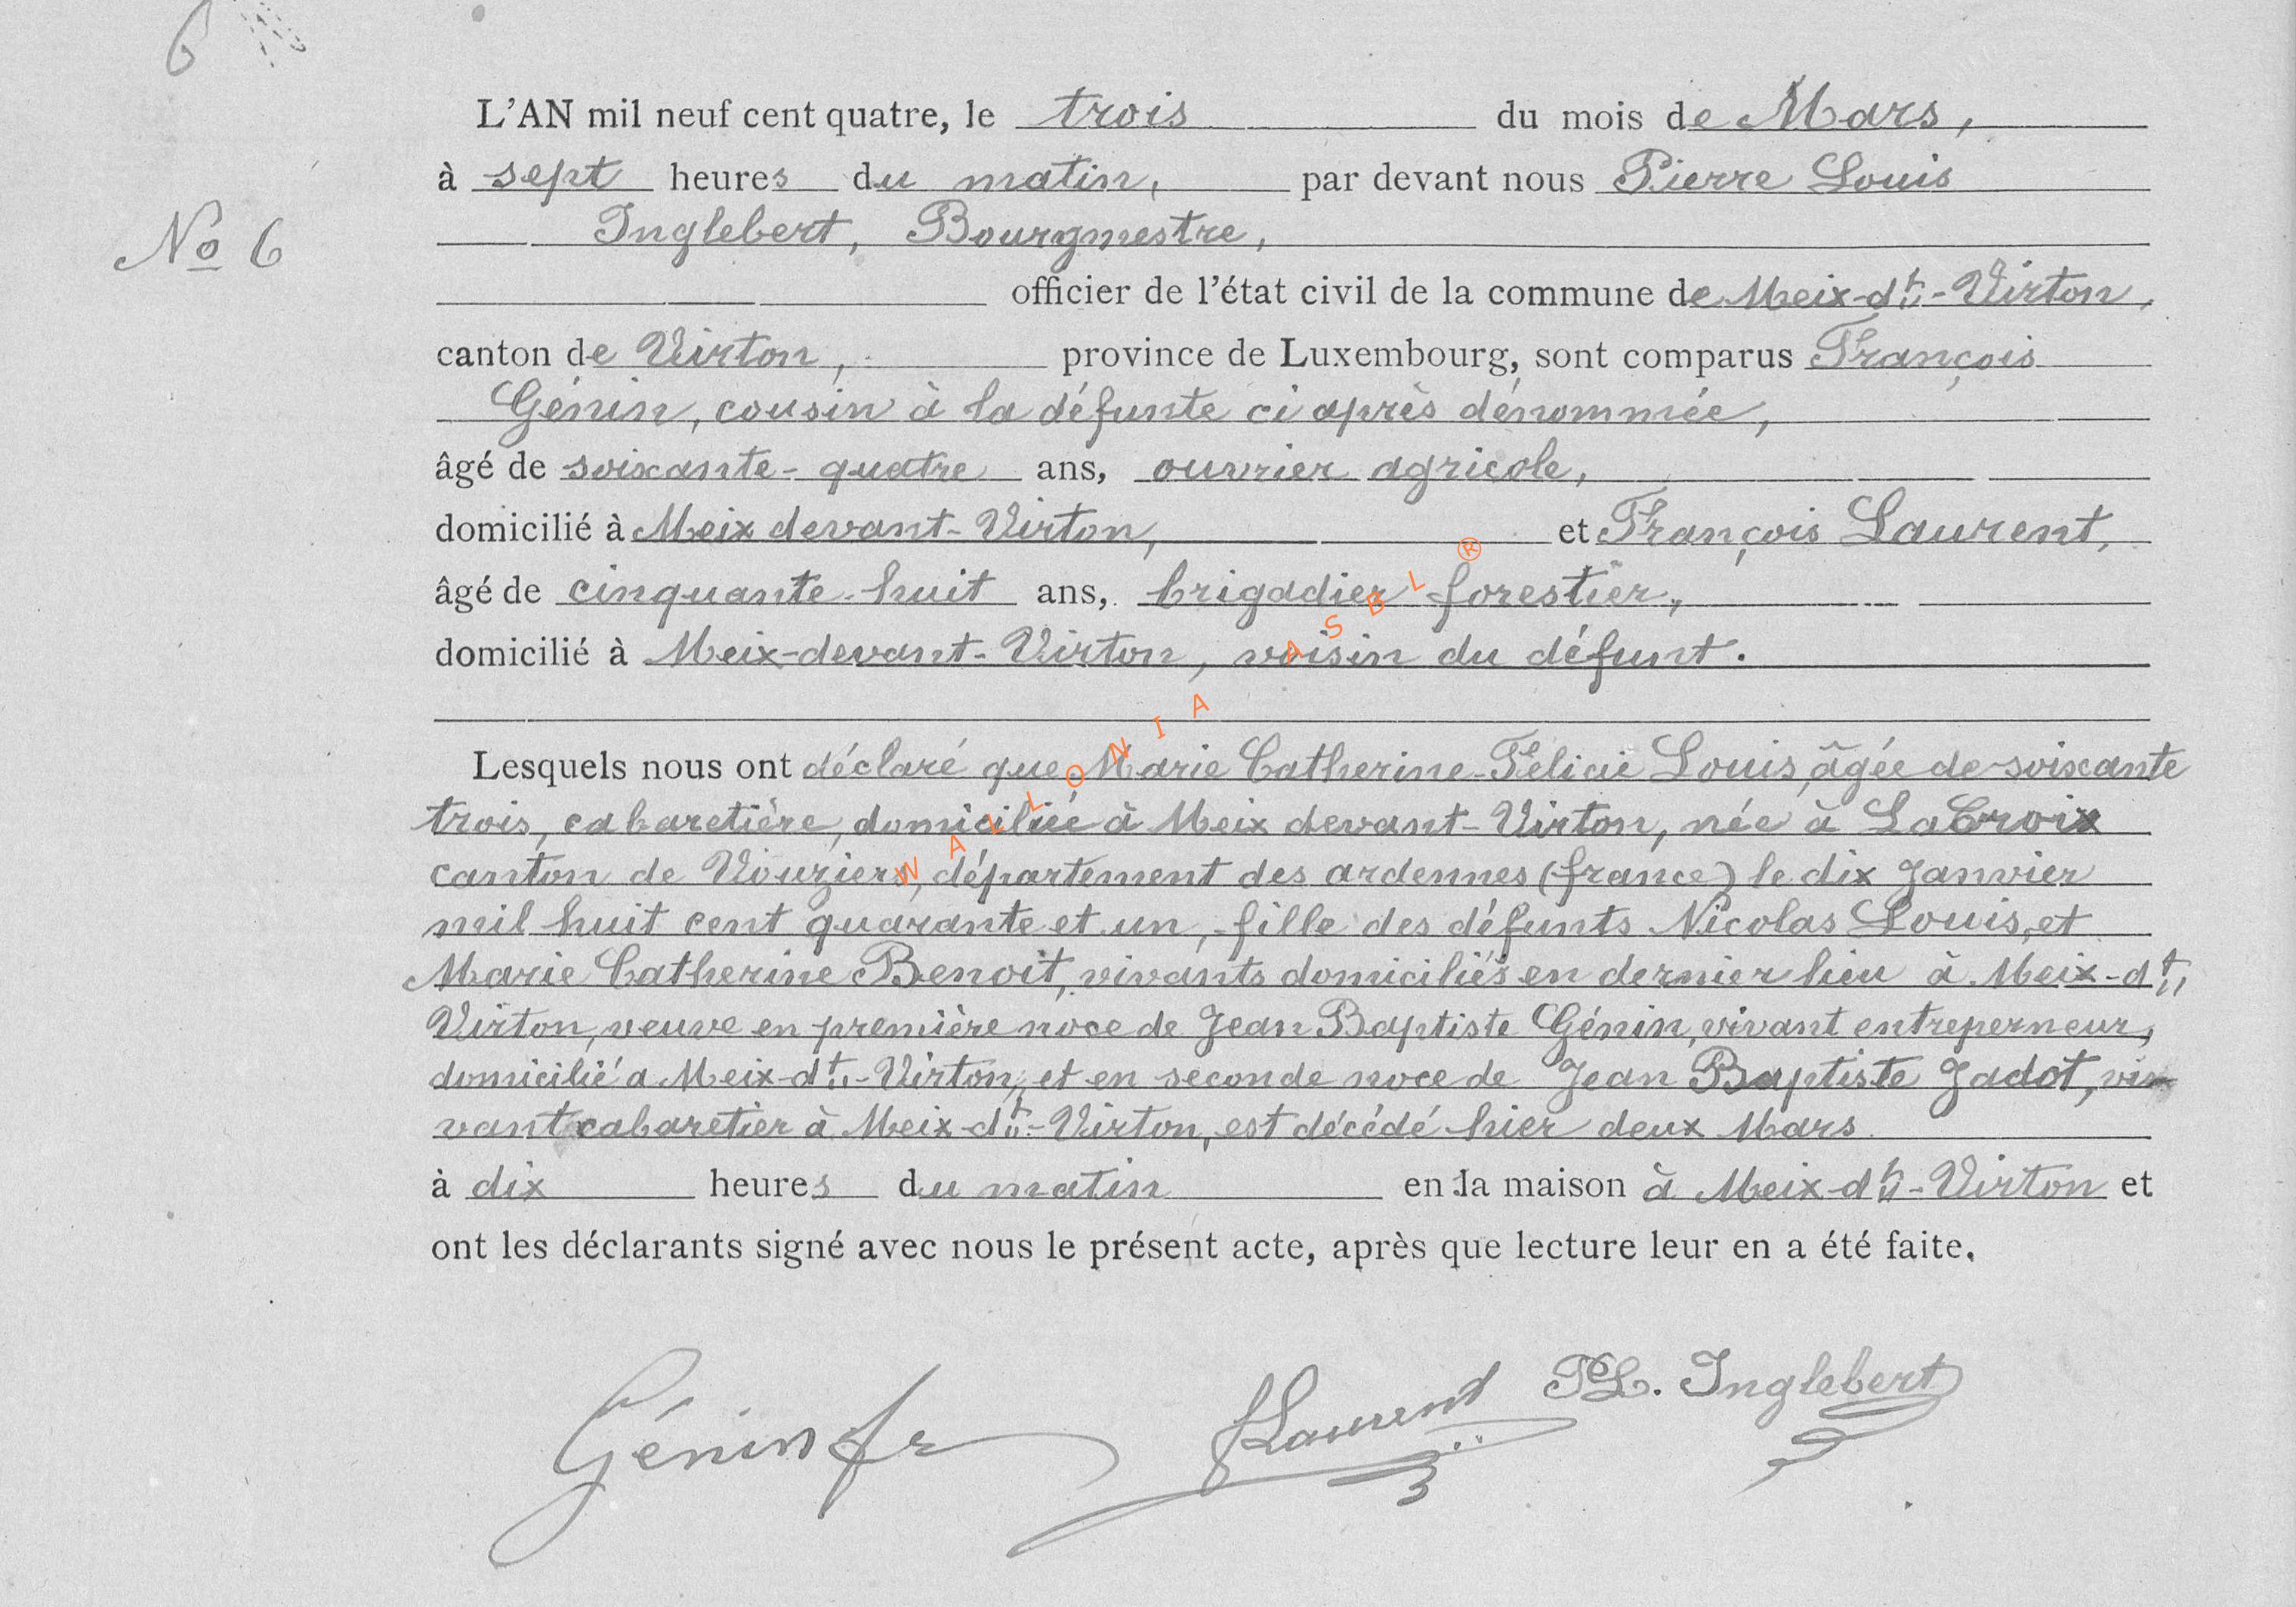 6
L'AN mil neuf cent quatre, le trois du mois de Mars,
à sept heures du matin, par devant nous Pierre Louis
No 6
Inglebert, Bourgmestre,
officier de l'état civil de la commune de Meix-dt-Virton,
canton de Virton, province de Luxembourg, sont comparus François
Génin, cousin à la défunte ci après dénommée,
âgé de soixante-quatre ans, ouvrier agricole,
domicilié à Meix devant-Virton, et François Laurent,
âgé de cinquante-huit ans, brigadier forestier,
domicilié à Meix-devant-Virton, voisin du défunt.
Lesquels nous ont déclaré que Marie Catherine-Félicie Louis, âgée de soixante
trois, cabaretière, domiciliée à Meix devant-Virton, née à La Croix
canton de Vouziers, département des ardennes (france) le dix Janvier
mil huit cent quarante et un, fille des défunts Nicolas Louis, et
Marie Catherine Benoit, vivants domiciliés en dernier lieu à Meix-dt
Virton, veuve en première noce de Jean Baptiste Génin, vivant entreperneur,
domicilié a Meix-dt-Virton, et en seconde noce de Jean Baptiste Jadot, vi-
vant cabaretier à Meix-dt-Virton, est décédé hier deux Mars
à dix heures du matin en la maison à Meix-dt-Virton et
ont les déclarants signé avec nous le présent acte, après que lecture leur en a été faite.
Génin fr
f Laurent
PL. Inglebert
WALLONIA ASBL ®